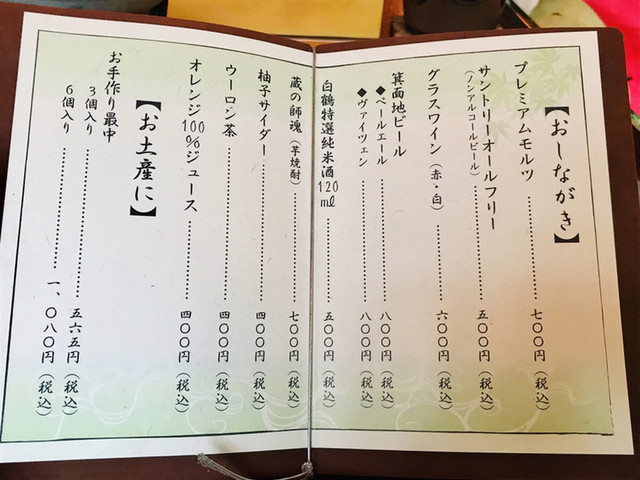 【おしながき】
プレミアムモルツ……………七〇〇円（税込）
サントリーオールフリー
（ノンアルコールビール）……………五〇〇円（税込）
グラスワイン（赤・白）……………六〇〇円（税込）
箕面地ビール
◆ペールエール……………八〇〇円（税込）
◆ヴァイツェン……………八〇〇円（税込）
白鶴特選純米酒120ml……………五〇〇円（税込）
蔵の師魂（芋焼酎）……………七〇〇円（税込）
柚子サイダー……………四〇〇円（税込）
ウーロン茶……………四〇〇円（税込）
オレンジ100％ジュース……………四〇〇円（税込）
【お土産に】
お手作り最中
3個入り……………五六五円（税込）
6個入り……………一、〇八〇円（税込）